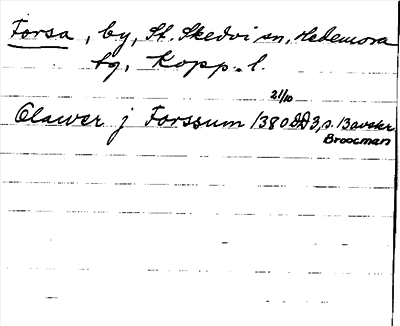 Forsa, by, St. Skedvi sn, Hedemora
tg, Kopp. l.
21/10
Olawer j Forssum 1380 DD3, s. 13 avskr.
Broocman